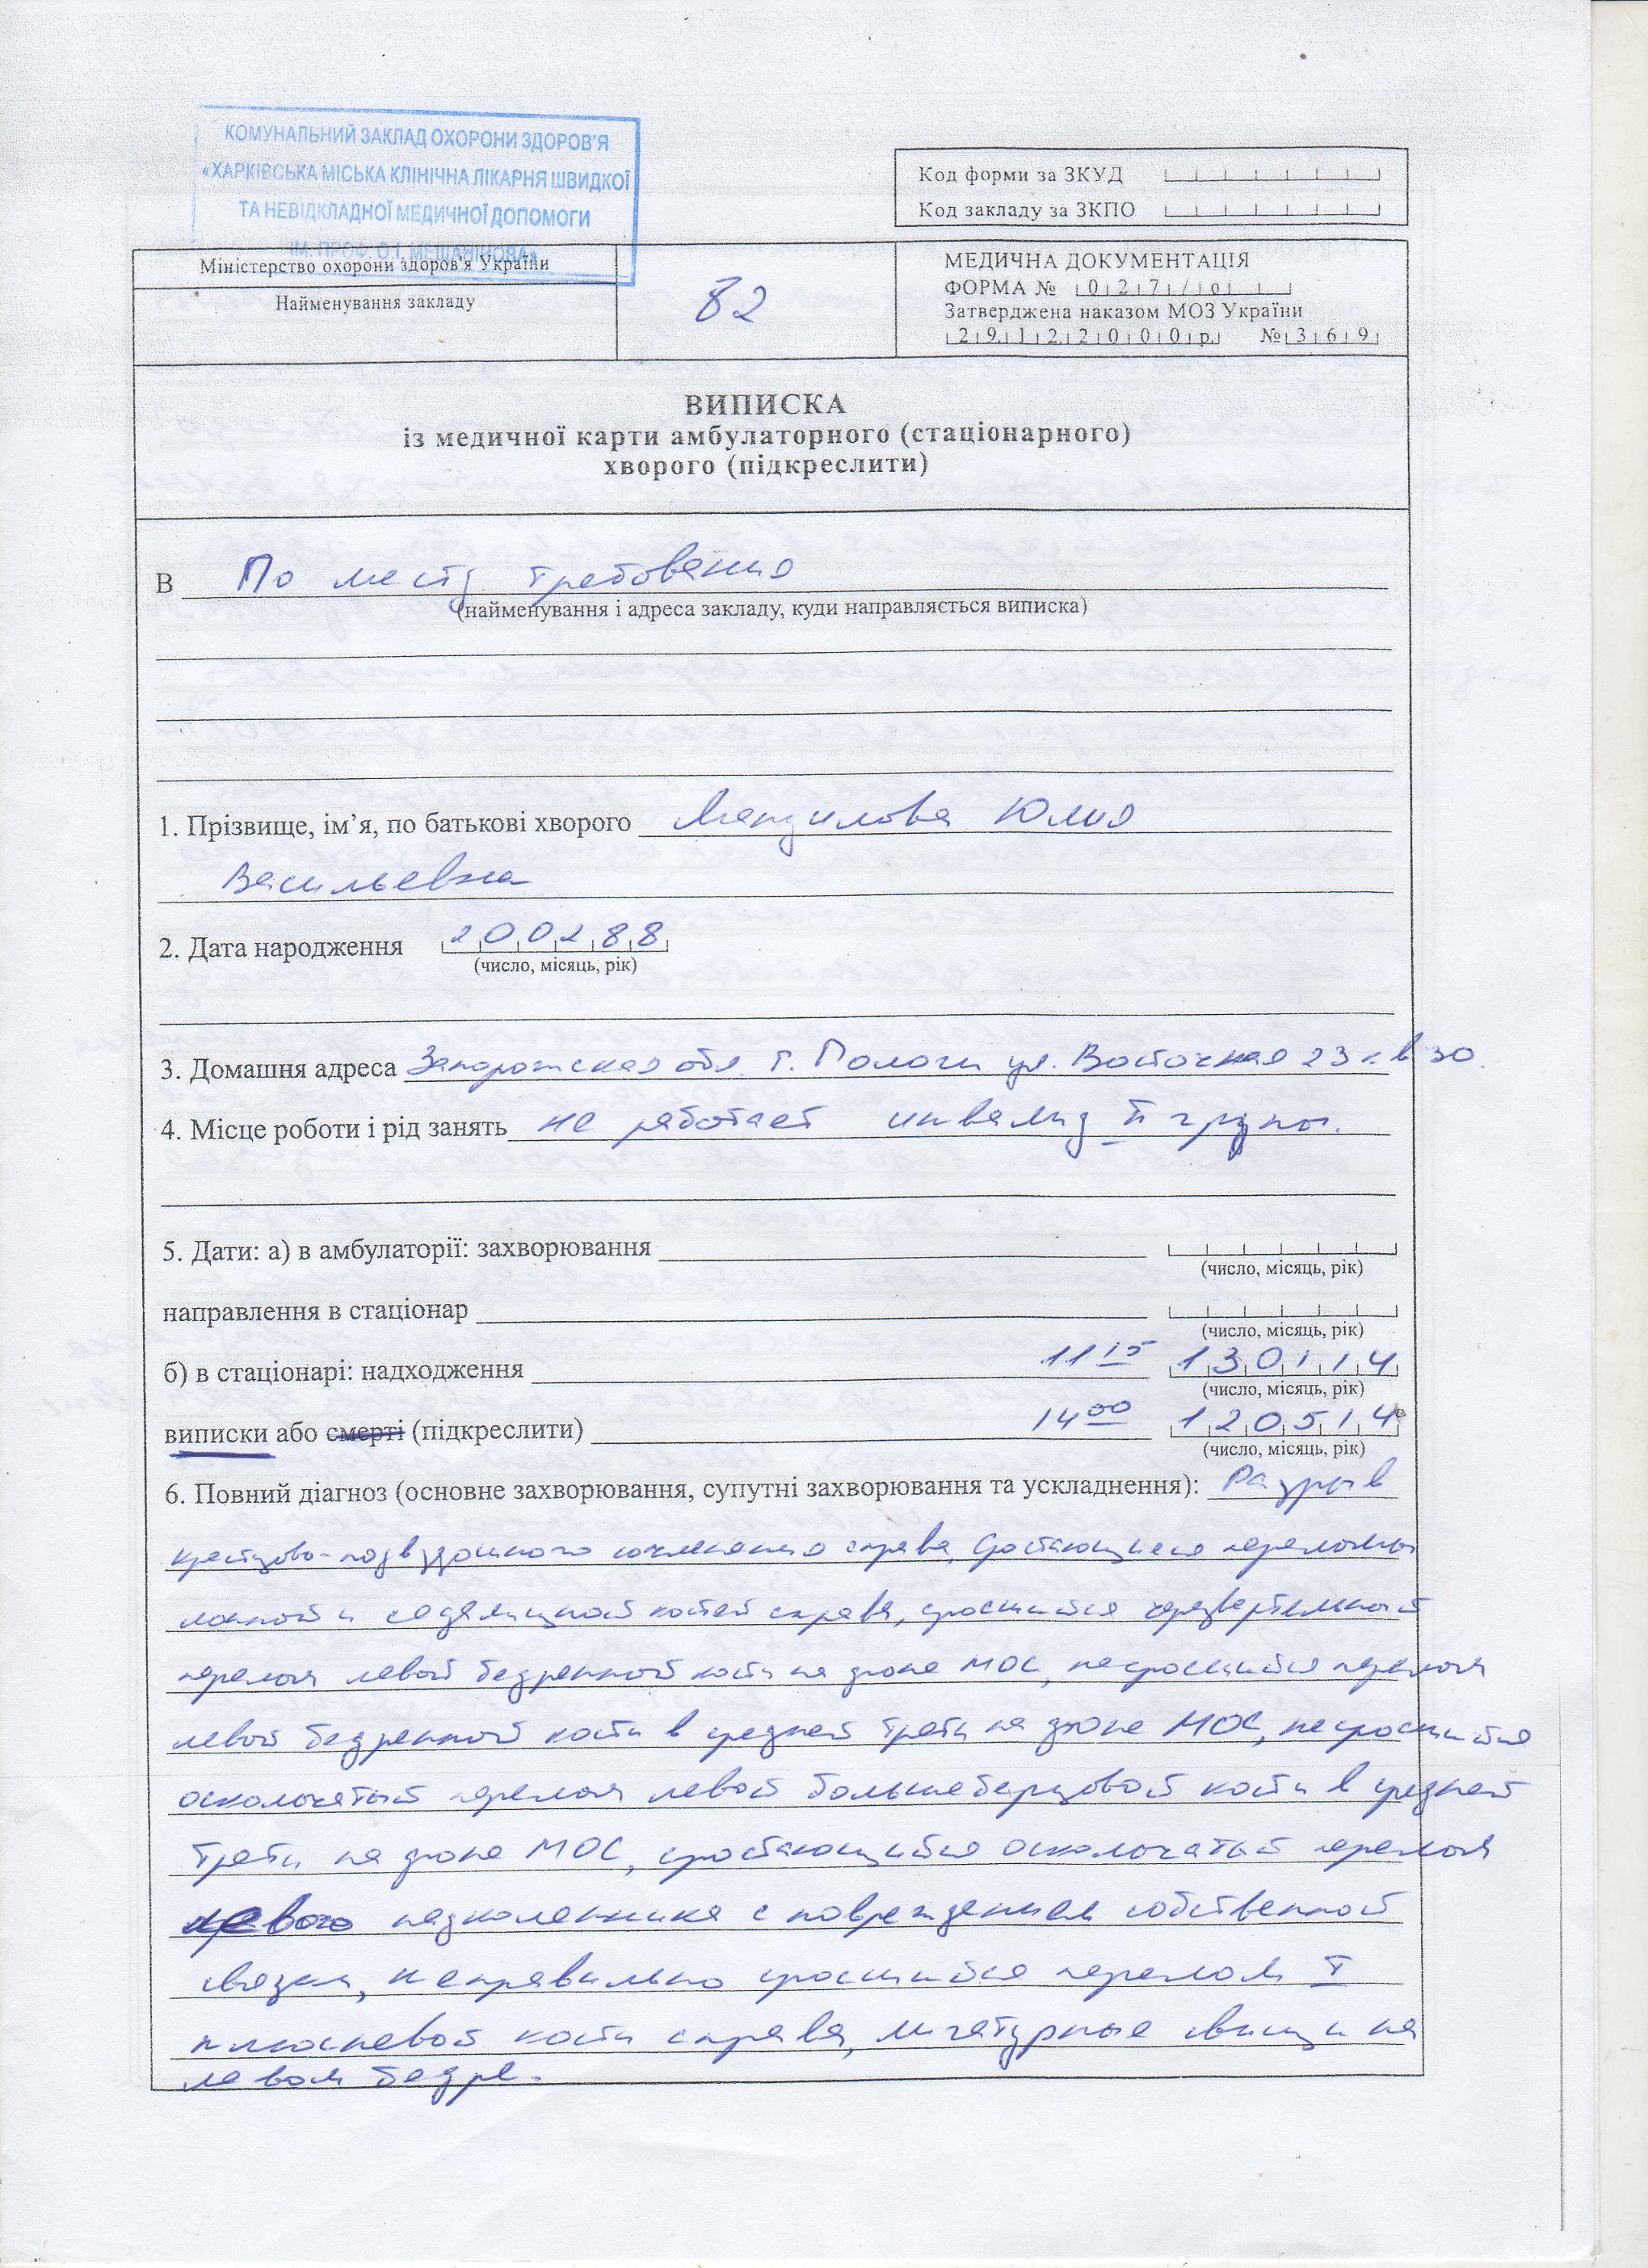 КОМУНАЛЬНИЙ ЗАКЛАД ОХОРОНИ ЗДОРОВ'Я
«ХАРКІВСЬКА МІСЬКА КЛІНІЧНА ЛІКАРНЯ ШВИДКОЇ
ТА НЕВІДКЛАДНОЇ МЕДИЧНОЇ ДОПОМОГИ
ІМ. ПРОФ. О.І. МЕЩАНІНОВА»
Код форми за ЗКУД
Код закладу за ЗКПО
Міністерство охорони здоров'я України
Найменування закладу
82
МЕДИЧНА ДОКУМЕНТАЦІЯ
ФОРМА № 027/о
Затверджена наказом МОЗ України
29122000р. № 369
ВИПИСКА
із медичної карти амбулаторного (стаціонарного)
хворого (підкреслити)
В По месту требования
(найменування і адреса закладу, куди направляється виписка)
1. Прізвище, ім’я, по батькові хворого Юлия
Васильевна
2. Дата народження 200288
(число, місяць, рік)
3. Домашня адреса Запорожская обл. г. Пологи ул. Восточная 23 кв 30
4. Місце роботи і рід занять не работает инвалид II групы.
5. Дати: а) в амбулаторії: захворювання
(число, місяць, рік)
направлення в стаціонар
(число, місяць, рік)
б) в стаціонарі: надходження 11 15 130114
(число, місяць, рік)
виписки або смерті (підкреслити) 14 00 120514
(число, місяць, рік)
6. Повний діагноз (основне захворювання, супутні захворювання та ускладнення): Разрыв
крестцово-подвздошного сочленения справа, срастающиеся переломы
лонной и седалищной костей справа, сросшийся чрезвертельный
перелом левой бедренной кости на фоне МОС, несросшийся перелом
левой бедренной кости в средней трети на фоне МОС, несросшийся
оскольчатый перелом левой большеберцовой кости в средней
трети на фоне МОС, срастающийся оскольчатый перелом
левого надколенника с повреждением собственной
связки, неправильно сросшийся перелом I
плюсневой кости справа, лигатурные свищи на
левом бедре.